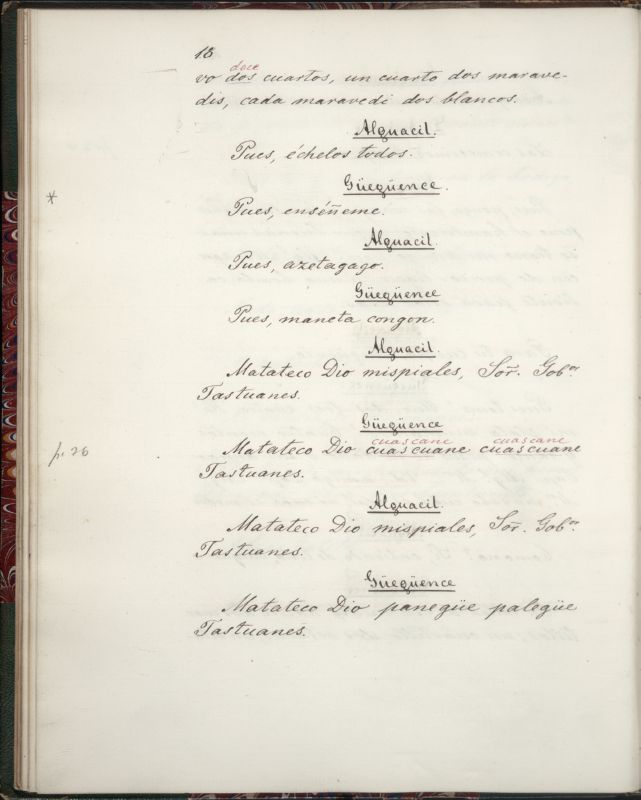 18
doce
vo dos cuartos, un cuarto dos marave-
dis, cada maravedi dos blancos.
Alguacil.
Pues, échelos todos.
Güegüence.
* Pues, enséñeme.
Alguacil.
Pues, azetagago.
Güegüence
Pues, maneta congon.
Alguacil.
Matateco Dio mispiales, Sor. Gobor.
Tastuanes.
Güegüence
cuascane cuascane
p. 26 Matateco Dio cuascuane cuascuane
Tastuanes.
Alguacil.
Matateco Dio mispiales, Sor. Gobor.
Tastuanes.
Güegüence
Matateco Dio panegüe palegüe
Tastuanes.